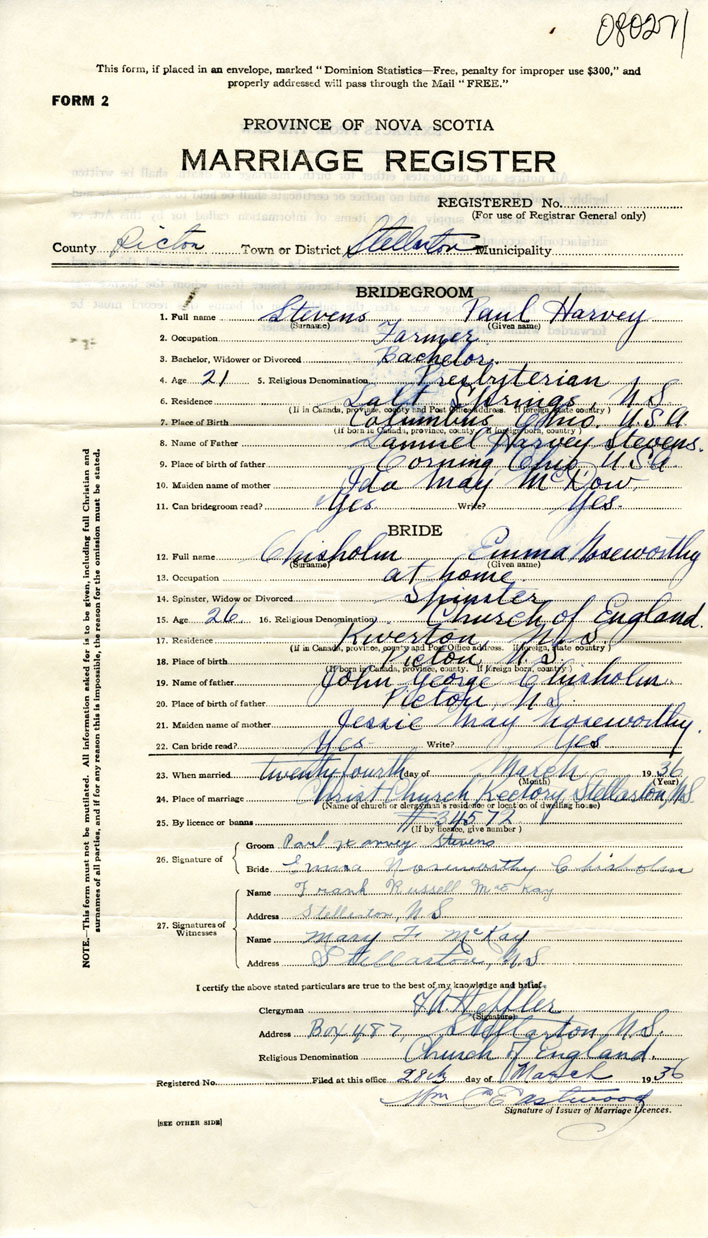 080271
This form, if placed in an envelope, marked "Dominion Statistics—Free, penalty for improper use $300," and
properly addressed will pass through the Mail "FREE."
FORM 2
PROVINCE OF NOVA SCOTIA
MARRIAGE REGISTER
REGISTERED No.
(For use of Registrar General only)
County Pictou Town or District Stellarton Municipality
BRIDEGROOM
1. Full name Stevens Paul Harvey
(Surname) (Given name)
2. Occupation Farmer
3. Bachelor, Widower or Divorced Bachelor.
4. Age 21 5. Religious Denomination Presbyterian
6. Residence Salt Springs, N.S.
(If in Canada, province, county and Post Office address. If foreign, state country)
7. Place of Birth Columbus, Ohio. U.S.A.
(If born in Canada, province, county. If foreign born, country)
8. Name of Father Samuel Harvey Stevens.
9. Place of birth of father Corning Ohio, U.S.A.
10. Maiden name of mother Ida May
11. Can bridegroom read? Yes. Write? Yes.
BRIDE
12. Full name Chisholm Emma Noseworthy
(Surname) (Given name)
13. Occupation at home.
14. Spinster, Widow or Divorced Spinster
15. Age 26 16. Religious Denomination Church of England.
17. Residence Riverton, N.S.
(If in Canada, province, county and Post Office address. If foreign, state country)
18. Place of birth Pictou, N.S.
(If born in Canada, province, county. If foreign born, country)
19. Name of father John George Chisholm.
20. Place of birth of father Pictou, N.S.
21. Maiden name of mother Jessie May Noseworthy.
22. Can bride read? Yes Write? Yes
23. When married twenty fourth day of March 1936
(Month) (Year)
24. Place of marriage Christ Church Rectory, Stellarton, N.S.
(Name of church or clergyman's residence or location of dwelling house)
25. By licence or banns #34572
(If by licence, give number)
26. Signature of
Groom Paul Harvey Stevens
Bride Emma Noseworthy Chisholm
27. Signatures of Witnesses
Name Frank Russell McKay
Address Stellarton, N.S
Name Mary F. McKay
Address Stellarton, N.S
I certify the above stated particulars are true to the best of my knowledge and belief.
Clergyman
(Signature)
Address Box 487, Stellarton, N.S.
Religious Denomination Church of England.
Registered No. Filed at this office 28th day of March 1936
Wm Eastwood
Signature of Issuer of Marriage Licences.
[SEE OTHER SIDE]
NOTE.—This form must not be mutilated. All information asked for is to be given, including full Christian and
surnames of all parties, and if for any reason this is impossible, the reason for the omission must be stated.